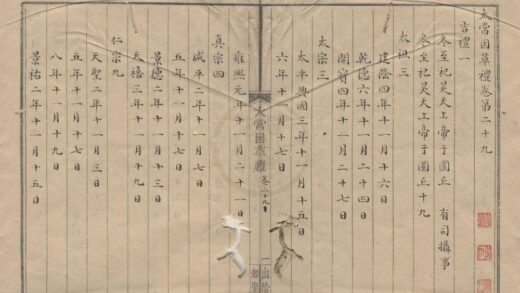 太常因革禮卷第二十九
吉禮一
冬至祀昊天上帝于圜丘 有司攝事
冬至祀昊天上帝于圜丘十九
太祖三
建隆四年十一月十六日
乾德六年十一月二十四日
開寶四年十一月二十七日
太宗三
太平興國三年十一月十五日
六年十一月十七日
太常因革禮 卷二十九 一
雍熙元年十一月二十一日
真宗四
咸平二年十一月七日
五年十一月十七日
景德二年十一月十三日
天禧三年十一月十九日
仁宗九
天聖二年十一月三日
五年十一月十七日
八年十一月十九日
景祐二年十一月十五日